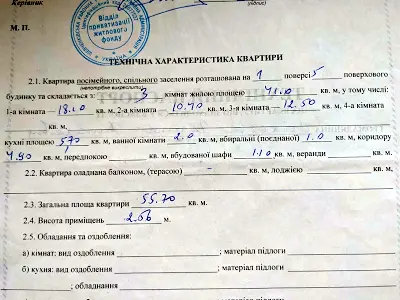 Керівник
(підпис)
М. П.
Відділ приватизації житлового фонду
ТЕХНІЧНА ХАРАКТЕРИСТИКА КВАРТИРИ
2.1. Квартира посімейного, спільного заселення розташована на 1 поверсі 5 поверхового
(непотрібне викреслити)
будинку та складається з: 3 кімнат жилою площею 41.00 кв. м, у тому числі:
1-а кімната — 18.10 кв. м, 2-а кімната — 10.40 кв. м, 3-я кімната — 12.50 кв. м, 4-а кімната
кв. м,
кухні площею 5.70 кв. м, ванної кімнати 2.0 кв. м, вбиральні (поєднаної) 1.0 кв. м, коридору
4.90 кв. м, передпокою кв. м, вбудованої шафи 1.10 кв. м, веранди кв. м.
2.2. Квартира оладнана балконом, (терасою) - кв. м, лоджією кв. м.
2.3. Загальна площа квартири 55.70 кв. м.
2.4. Висота приміщень 2.56 м.
2.5. Обладнання та оздоблення:
а) кімнат: вид оздоблення ; матеріал підлоги
б) кухня: вид оздоблення ; матеріал підлоги
; обладнання